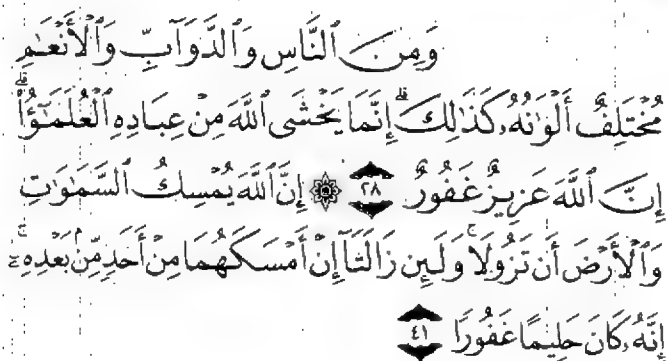 وَمِنَ ٱلنَّاسِ وَٱلدَّوَآبِّ وَٱلْأَنْعَـٰمِ
مُخْتَلِفٌ أَلْوَٰنُهُۥ كَذَٰلِكَ ۗ إِنَّمَا يَخْشَى ٱللَّهَ مِنْ عِبَادِهِ ٱلْعُلَمَـٰٓؤُا۟ ۗ
إِنَّ ٱللَّهَ عَزِيزٌ غَفُورٌ ٢٨ ۞ إِنَّ ٱللَّهَ يُمْسِكُ ٱلسَّمَـٰوَٰتِ
وَٱلْأَرْضَ أَن تَزُولَا ۚ وَلَئِن زَالَتَآ إِنْ أَمْسَكَهُمَا مِنْ أَحَدٍ مِّنۢ بَعْدِهِۦٓ ۚ
إِنَّهُۥ كَانَ حَلِيمًا غَفُورًا ٤١